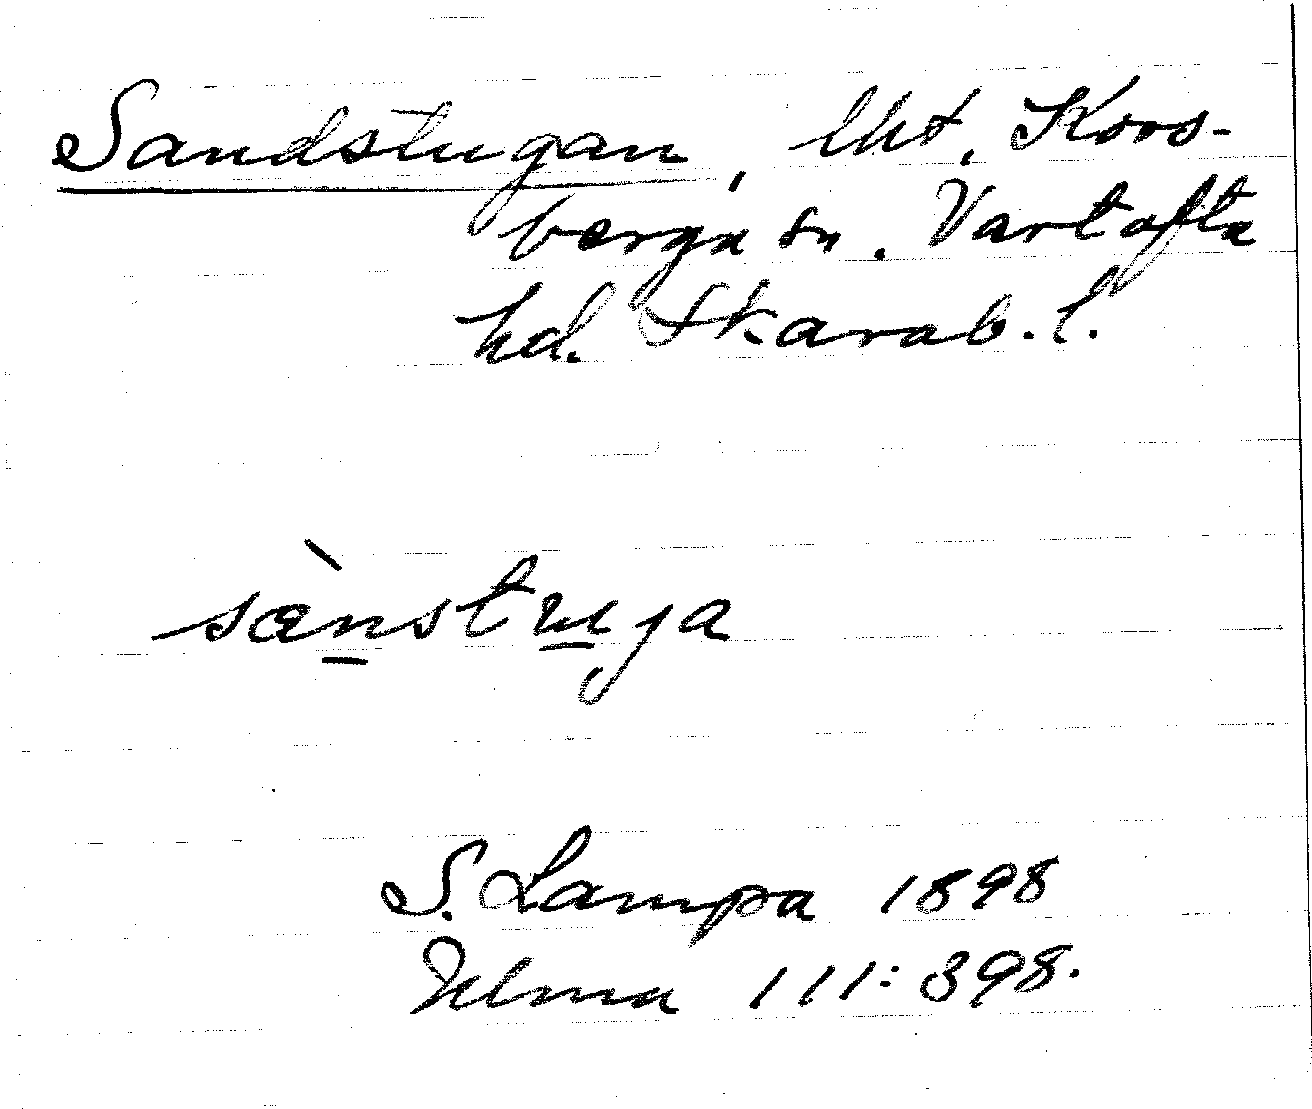 Sandstugan, lht, Kors-
berga sn. Vartofta
hd. Skarab. l.
sànstuja
S. Lampa 1898
Ulma 111: 398.